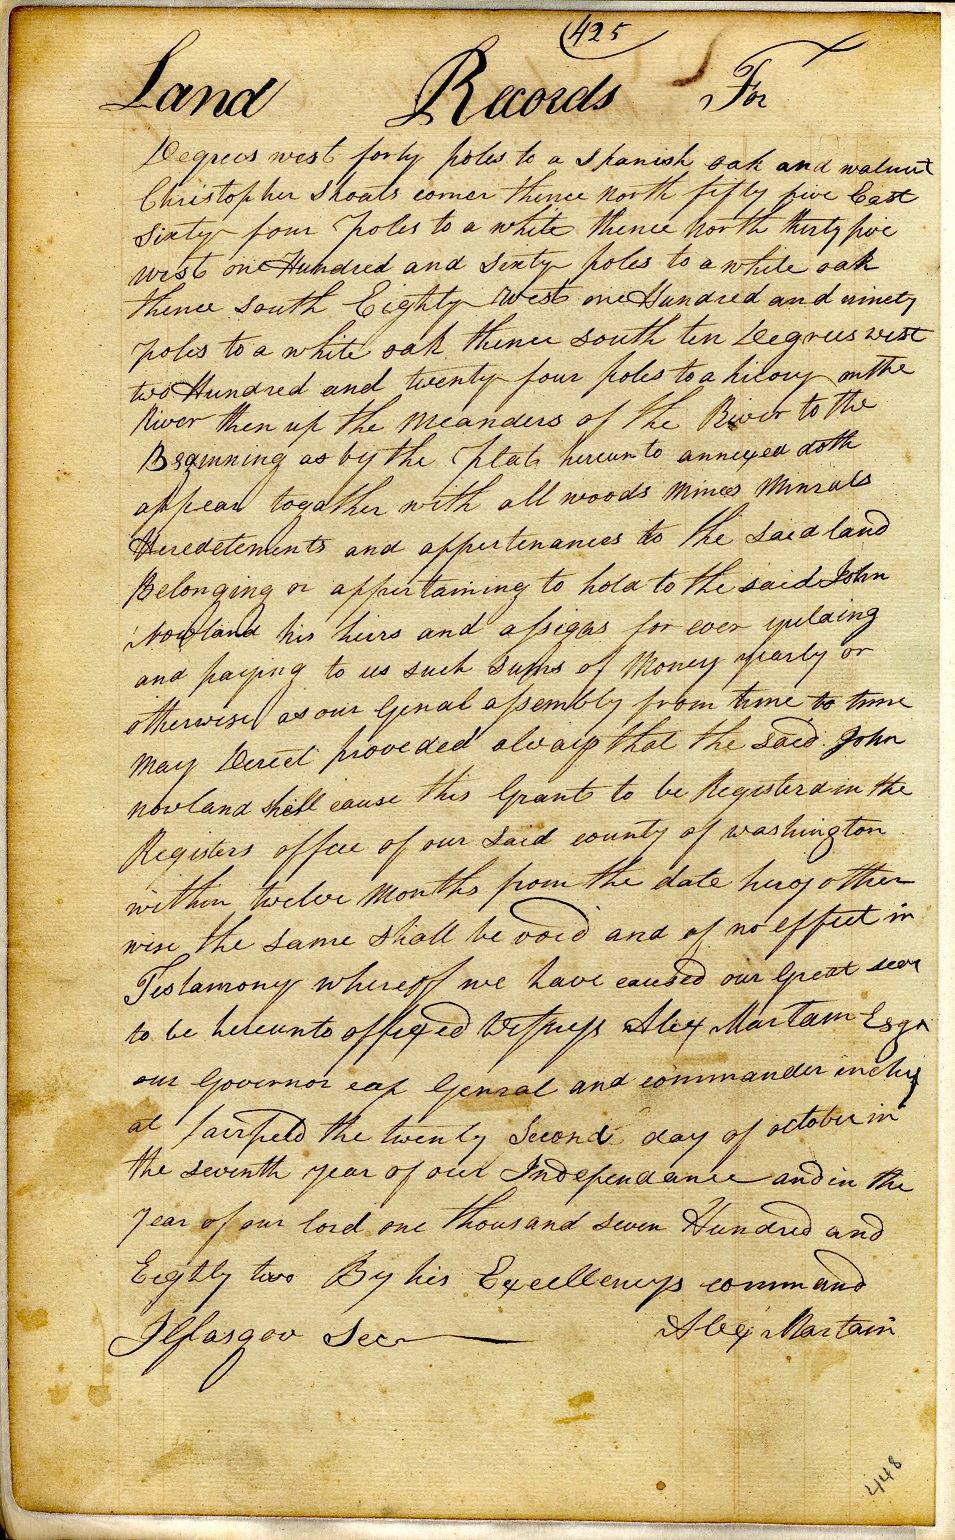 425
Land Records For
Degrees west forty poles to a Spanish oak and walnut
Christopher Shoats corner thence North fifty five East
sixty four poles to a white thence North thirty five
west one Hundred and sixty poles to a white oak
thence south Eighty west one Hundred and ninety
poles to a white oak thence south ten Degrees west
two Hundred and twenty four poles to a hicory on the
River then up the meanders of the River to the
Begmning as by the plat hereunto annexed doth
appear together with all woods mines Minrals
Heredetements and appertinances to the said land
Belonging or appertaining to hold to the said John
Nowland his heirs and assigns for ever yulding
and paying to us such sums of Money yearly or
otherwise as our Genal assembly from time to time
may Derect proveded always that the said John
nowland shall cause this Grant to be Registerd in the
Registers offce of our said county of washington
within twelve Months from the date herof other
wise the same shall be void and of no effect in
Testamony whereoff we have caused our Great seal
to be hereunto affixed Witness Alex Martain Esqr
our Governor cap Genral and commander in chif
at fairfield the twenty second day of october in
the seventh year of our Independance and in the
year of our lord one thousand seven Hundred and
Eighty two By his Excellencys command
J Glasgow Sec Alex Martain
448